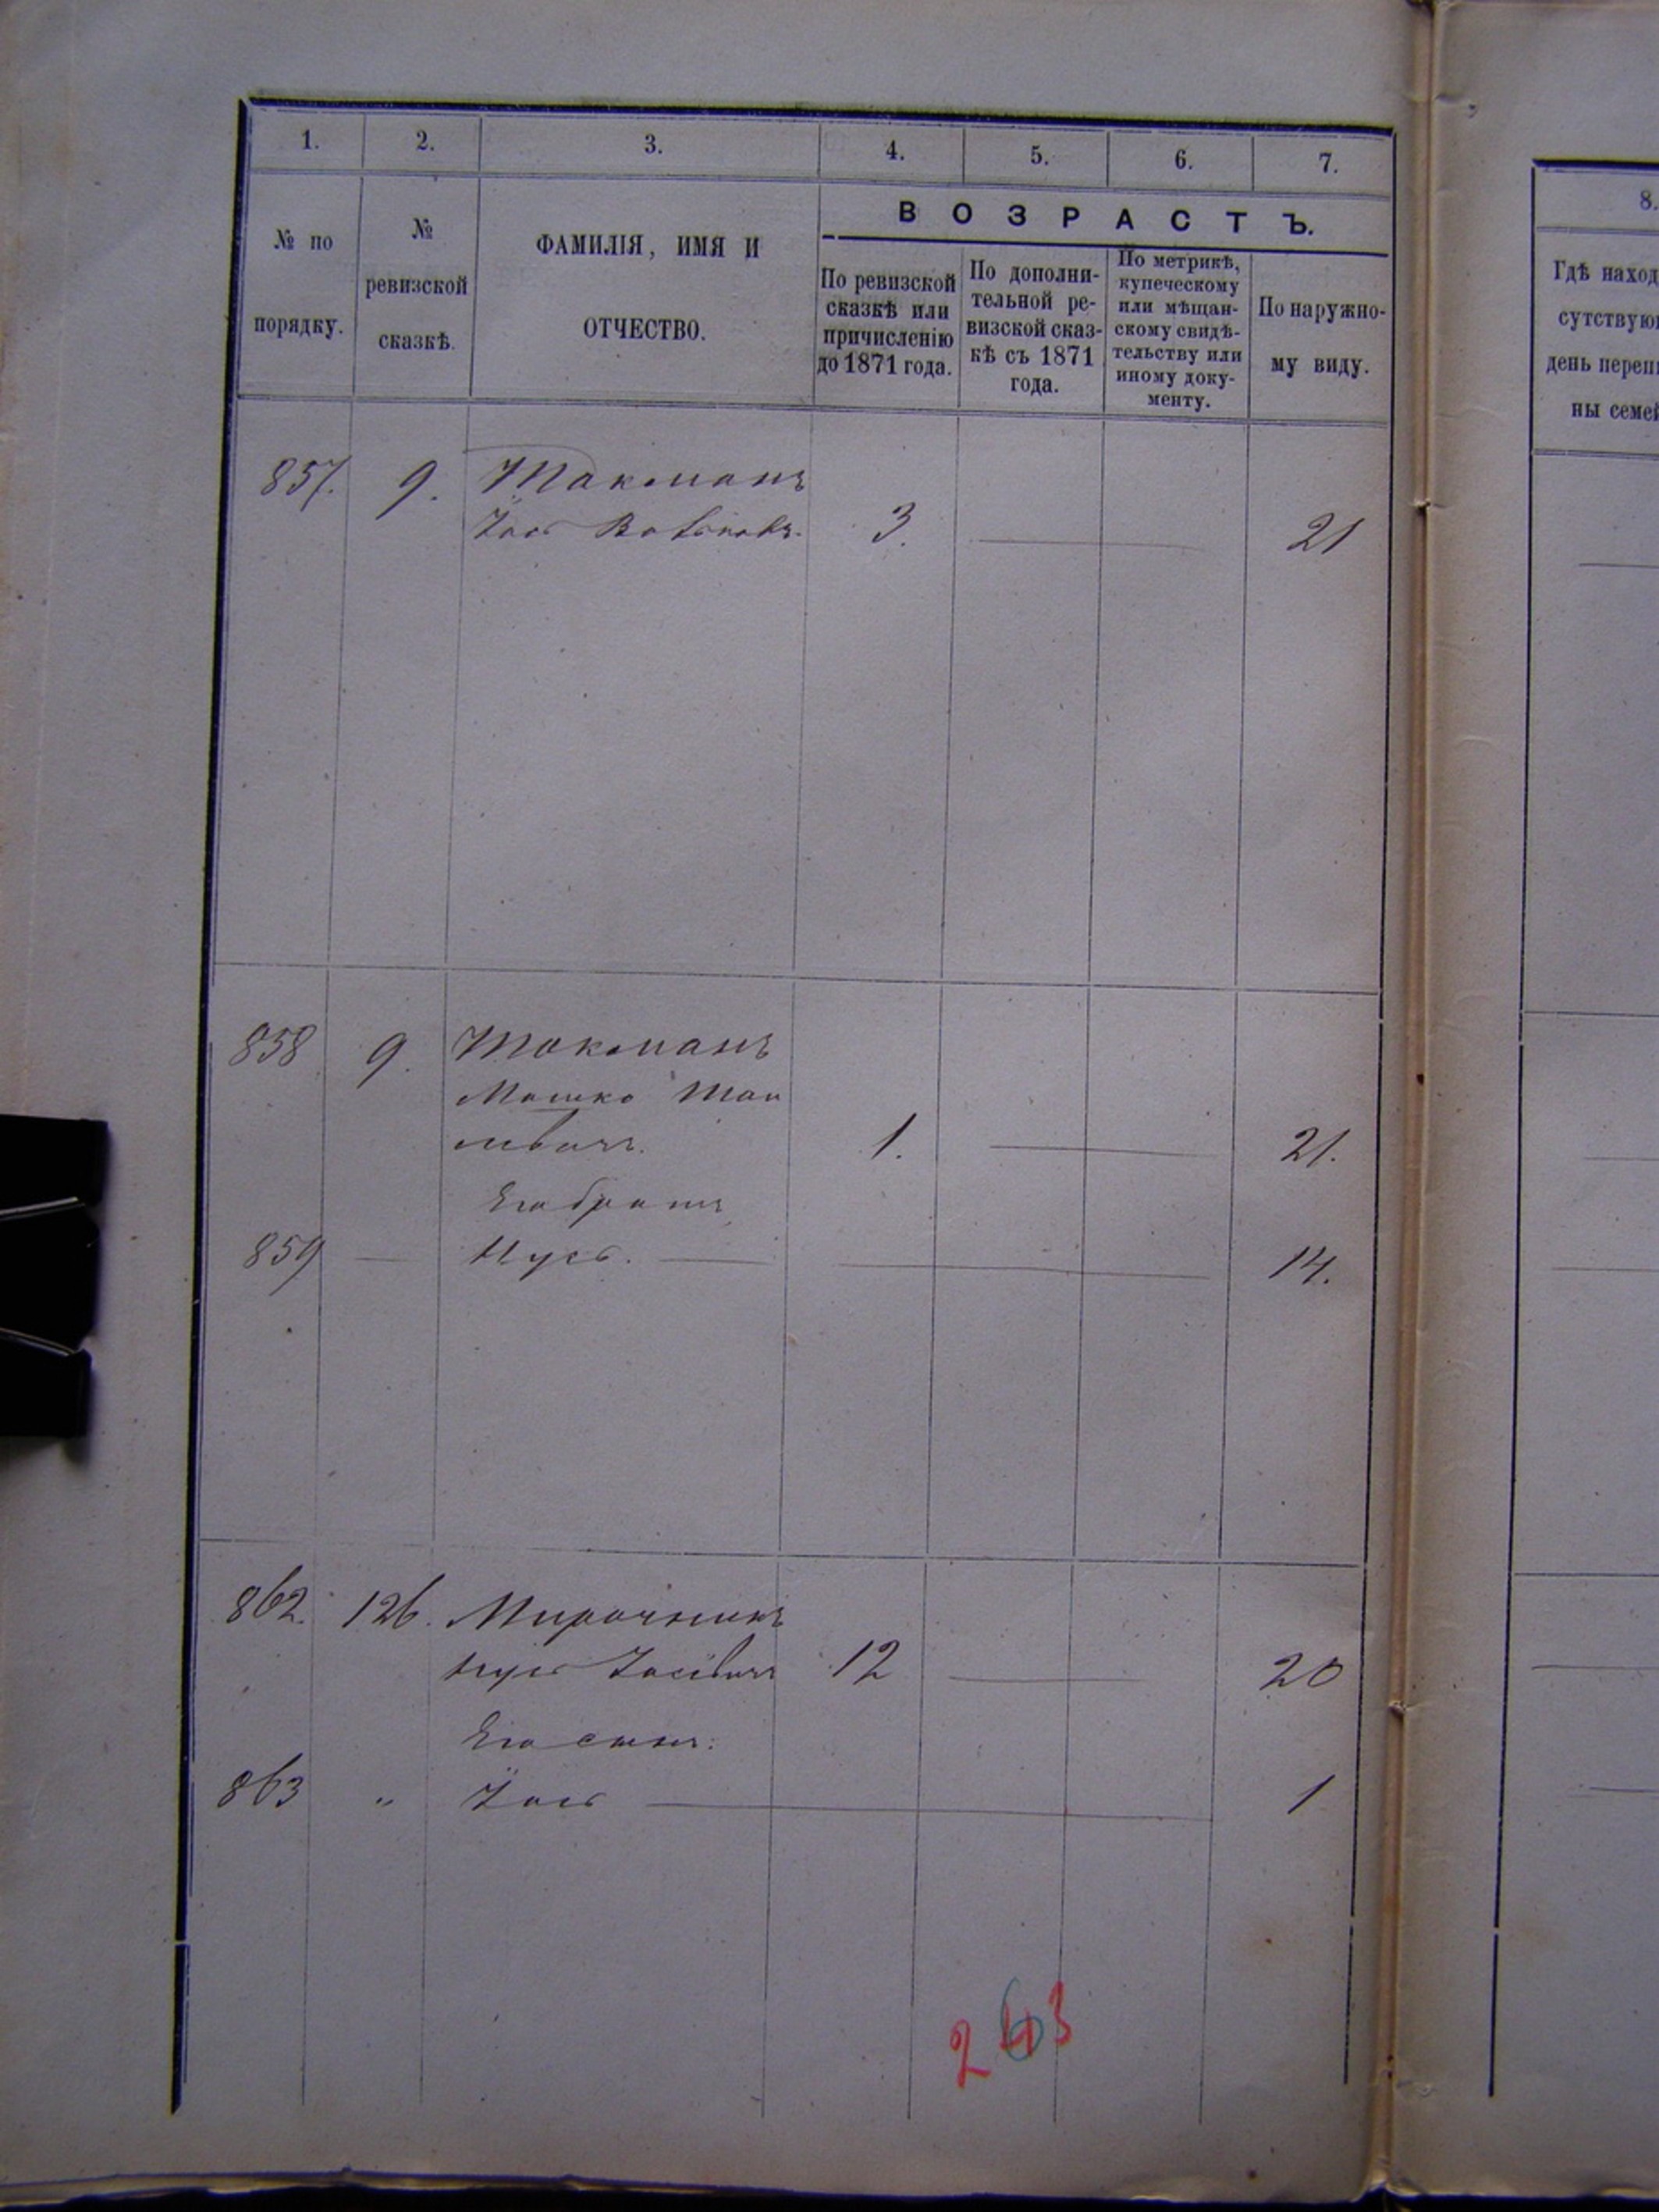 1. 2. 3. 4. 5. 6. 7.
№ по порядку.
№ ревизской сказкѣ.
ФАМИЛІЯ, ИМЯ И
ОТЧЕСТВО.
ВОЗРАСТЪ.
По ревизской
сказкѣ или
причисленію
до 1871 года.
По дополни-
тельной ре-
визской сказ-
кѣ съ 1871
года.
По метрикѣ,
купеческому
или мѣщан-
скому свидѣ-
тельству или
иному доку-
менту.
По наружно-
му виду.
857. 9. Токманъ
Іось 3. 21
858 9. Токманъ
Мошко
1. 21.
Его братъ
859 Нусь. 14.
862. 126. Мирочникъ
Нусь 12 20
Его сынъ:
863 " Іось 1
263
8.
Гдѣ наход
сутствую
день переп
ны семе